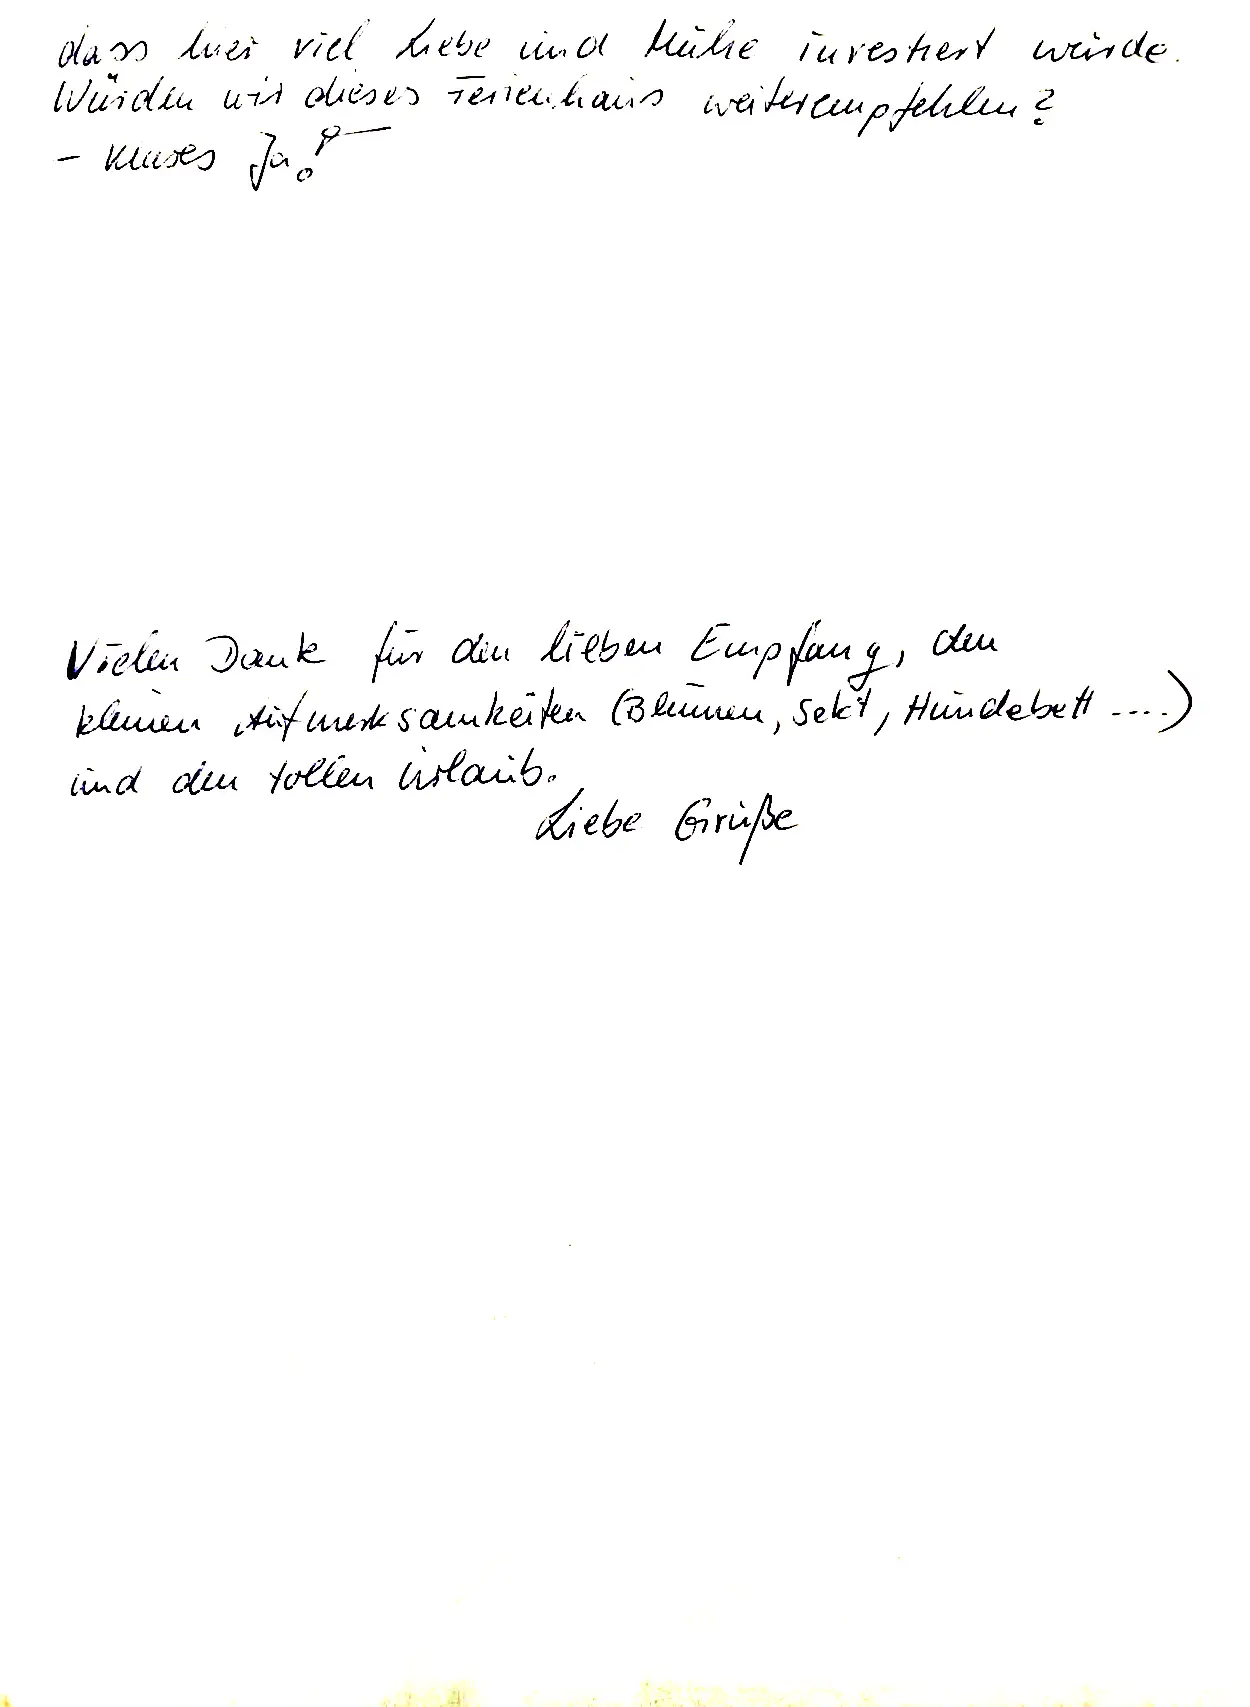 dass hier viel Liebe und Mühe investiert wurde.
Würden wir dieses Ferienhaus weiterempfehlen?
- klares Ja!
Vielen Dank für den lieben Empfang, den
kleinen Aufmerksamkeiten (Blumen, Sekt, Hundebett ....)
und den tollen Urlaub.
Liebe Grüße